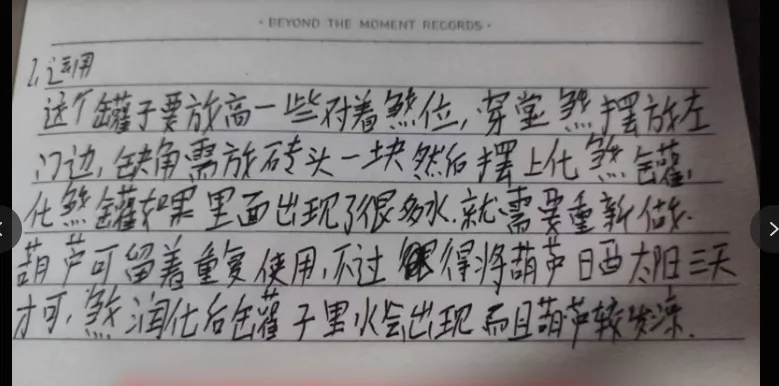 · BEYOND THE MOMENT RECORDS ·
2,运用
这个罐子要放高一些对着煞位,穿堂煞摆放在
门边,缺角需放砖头一块然后摆上化煞罐,
化煞罐如果里面出现了很多水.就需要重新做.
葫芦可留着重复使用,不过得将葫芦日晒太阳三天
才可,煞润化后罐子里水会出现而且葫芦较发凉.